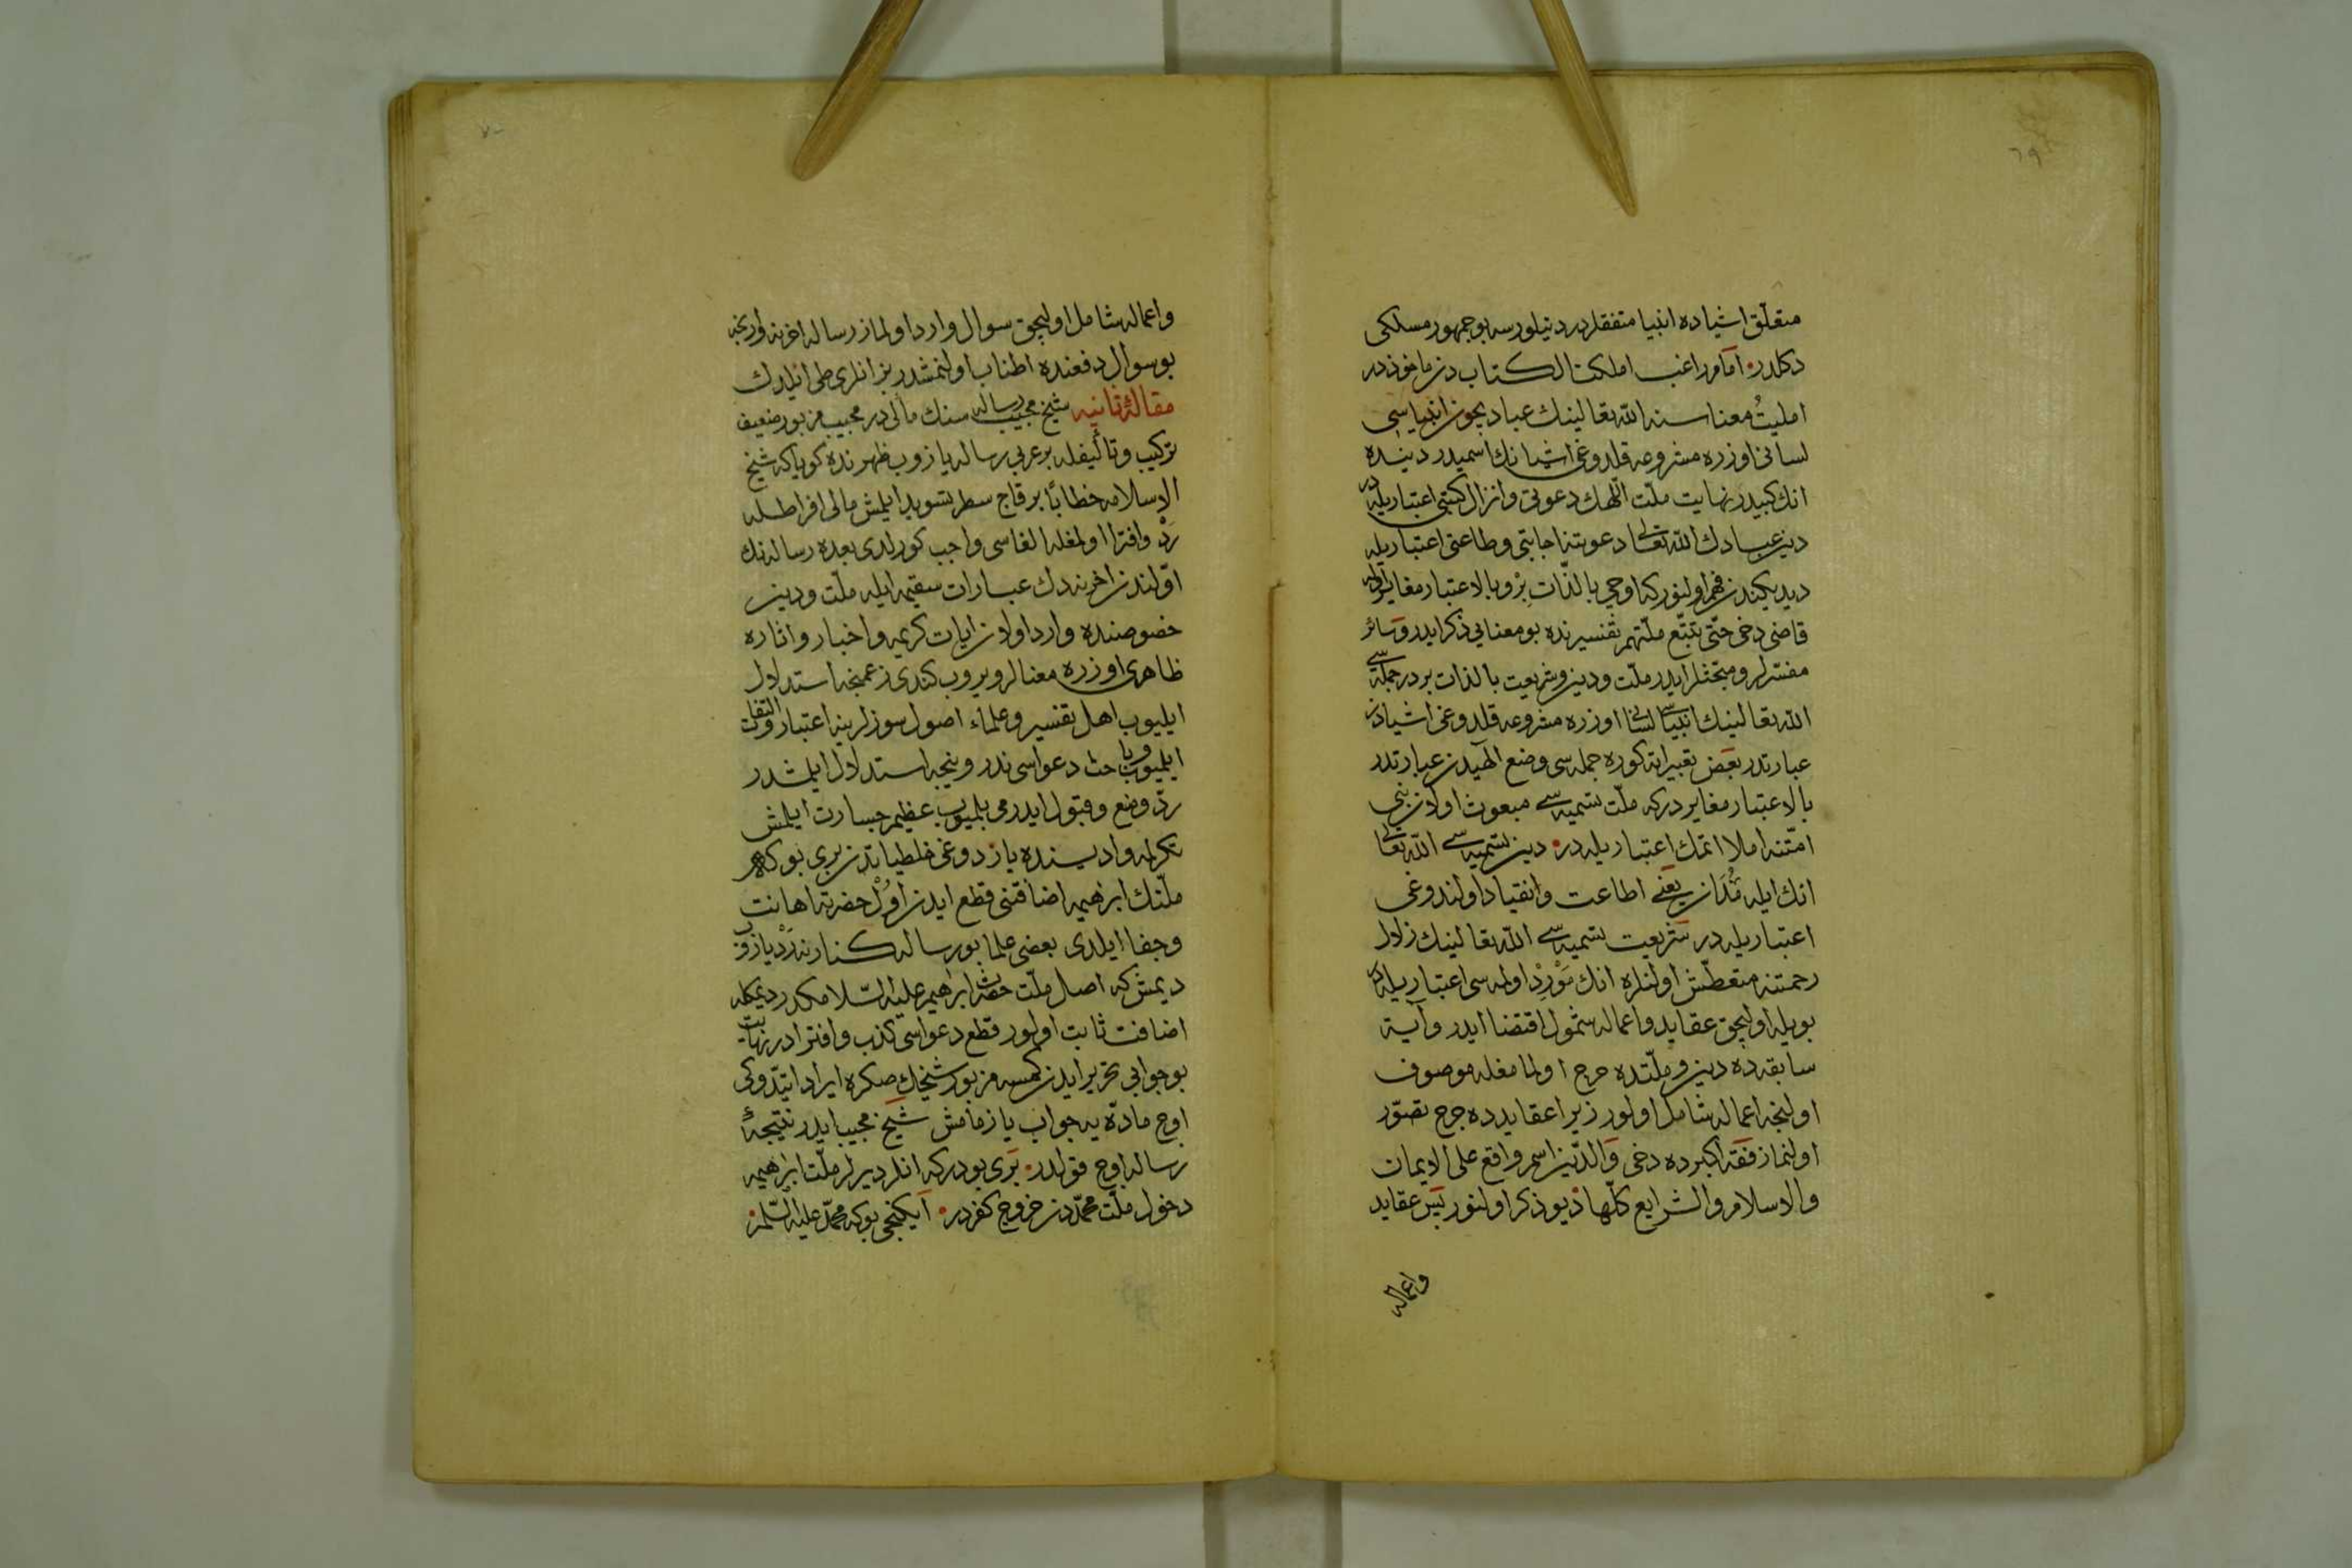 ٦٩
متعلق اشياده انبيا متفقلردر دينلورسه بو جمهور مسلكى
دكلدر اما راغب امللت الكتاب دن مأخوذدر
امليتُ معناسنه الله تعالينك عباديچون انبياسى
لسانى اوزره مشروعه قلدوغى اشيانك اسميدر دينده
انك كبيدر نهايت ملّت اللهك دعوتى وانزال كتبى اعتباريله در
دين عبادك الله تعالى دعوتنه اجابتى وطاعتى اعتباريله
ديديكندن فهم اولنور كه اوچى بالذّات بِرْ وبالاعتبار مغاير اوله
قاضى دخى حتّى تتّبع ملّتهم تفسيرنده بو معنايى ذكر ايدر وسائر
مفسّرلر ومتحثلر ايدر ملّت ودين وشريعت بالذات بردر جمله سى
الله تعالينك انبياسى لسانى اوزره مشروعه قلدوغى اشيادن
عبارتدر بعض تعبيراته كوره جمله سى وضع الهيدن عبارتدر
بالاعتبار مغايردر كه ملّت تسميه سى مبعوث اولان نبى
امّتنه املا اتمك اعتباريله در دين تسميه سى الله تعالى
انك ايله مُدَان يعنى اطاعت وانقياد اولندوغى
اعتباريله در شريعت تسميه سى الله تعالينك زلال
رحمتنه متعطّش اولنلره انك مَوْرِدْ اولمه سى اعتباريله در
بويله اوليجق عقايد واعماله شمول اقتضا ايدر وآية
سابقه ده دين وملّتده حرج اولمامغله موصوف
اولنجه اعماله شامل اولور زيرا عقايدده حرج تصوّر
اولنماز فقه اكبرده دخى والدّين اسم واقع على الايمان
والاسلام والشرايع كلّها ديو ذكر اولنور پس عقايد
واعماله
٧٠
واعماله شامل اوليجق سوال وارد اولماز رساله اخرنه وارنجه
بو سوال دفعنده اطناب اولنمشدر بز انلرى طى ايلدك
مقالۀ ثانيه شيخ مجيب رساله سنك مآلى در مجيب مزبور ضعيف
تركيب وتأليفله بر عربى رساله يازوب ظهرنده كويا كه شيخ
الاسلامه خطابًا بر قاچ سطر تسويد ايلمش مآلى افراطله
رَدّ وافترا اولمغله الغاسى واجب كورلدى بعده رساله نك
اوّلندن اخرنه دك عبارات سقيمه ايله ملّت ودين
خصوصنده وارد اولان ايات كريمه واخبار واثاره
ظاهرى اوزره معنالر ويروب كندى زعمنجه استدلال
ايليوب اهل تفسير وعلماء اصول سوزلرينه اعتبار والتفات
ايليوب وباحث دعواسى ندر ونيجه استدلال ايلمشدر
ردّ ومنع وقبول ايدرمى بلميوب عظيم جسارت ايلمش
تكرلمه واديسنده يازدوغى غلطياتدن برى بو كه هر
ملّتك ابرهيمه اضافتنى قطع ايدن اوُلْ حضرته اهانت
وجفا ايلدى بعضى علما بو رساله كنارنه رَدْ يازوب
ديمش كه اصل ملّت حضرت ابرهيم عليه السّلامكدر ديمكله
اضافت ثابت اولور قطع دعواسى كذب وافترادر نهايت
بو جوابى تحرير ايدن كمسه مزبور شيخك صكره ايراد ايتدوكى
اوچ مادّه يه جواب يازمامش شيخ مجيب ايدر نتيجۀ
رساله اوچ قولدر برى بودر كه انلر ديرلر ملّت ابرهيمه
دخول ملّت محمّددن خروج كفردر ايكنجى بو كه محمّد عليه السّلمز